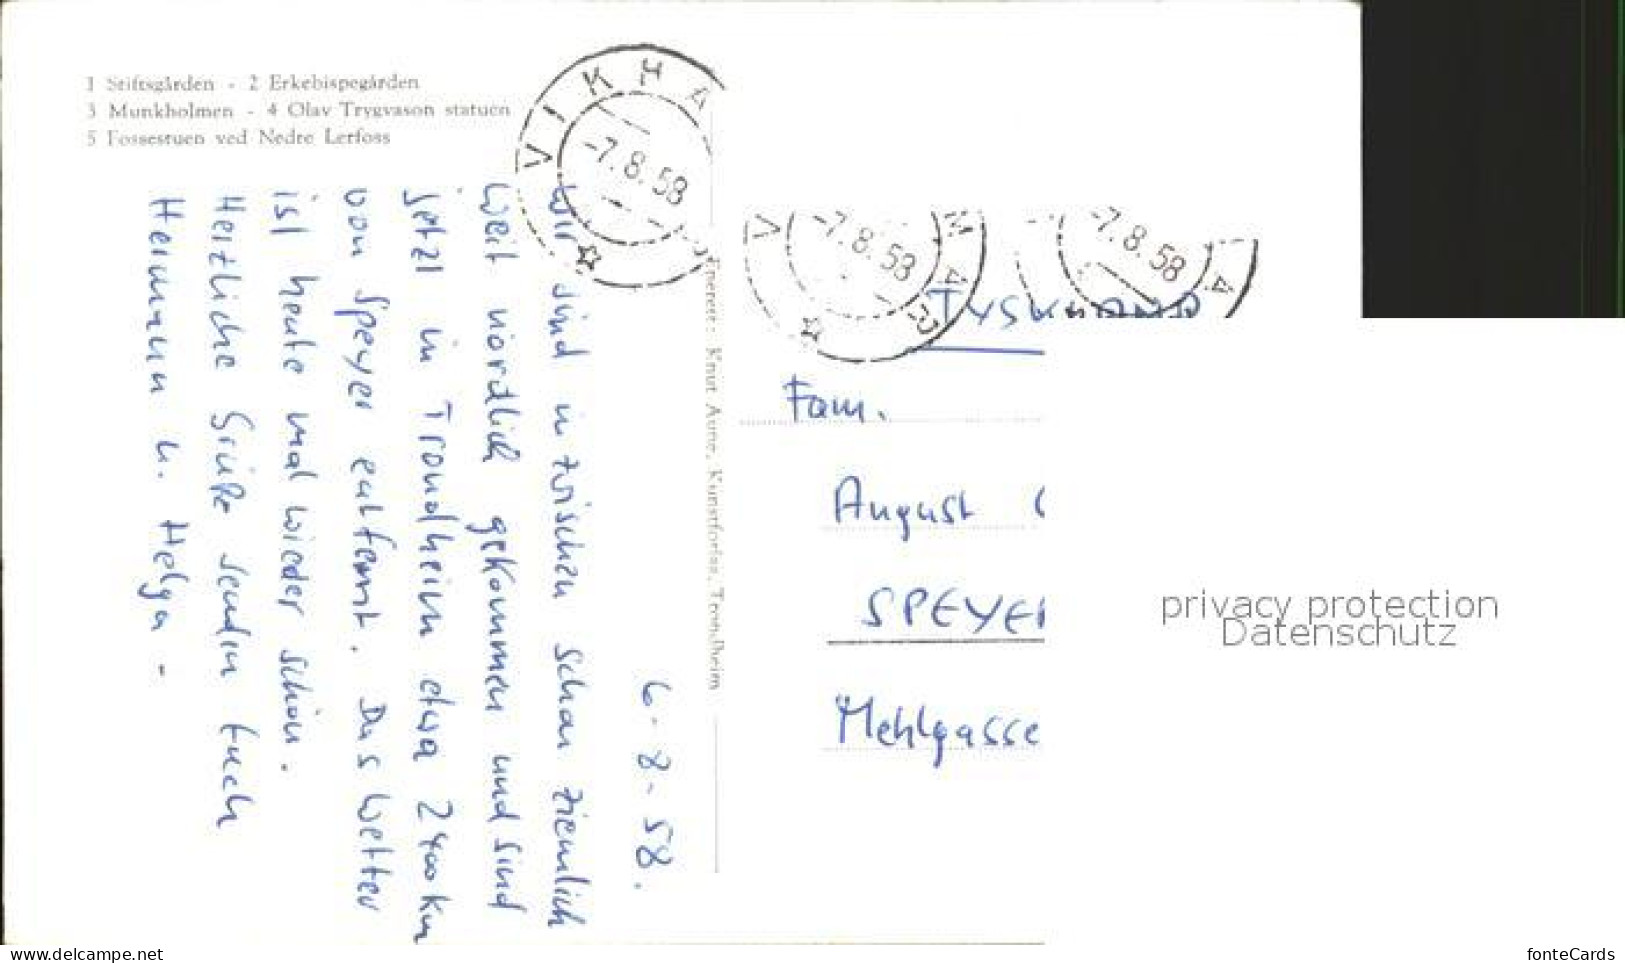 1 Stiftsgården - 2 Erkebispegården
3 Munkholmen - 4 Olav Trygvason statuen
5 Fossestuen ved Nedre Lerfoss
VIKHA
-7.8.58
-7.8.58
-7.8.58
6-8-58.
Wir sind inzwischen schon ziemlich
weit nördlich gekommen und sind
jetzt in Trondheim etwa 2400 km
von Speyer entfernt. Das Wetter
ist heute mal wieder schön.
Herzliche Grüße senden Euch
Hermann u. Helga -
Enerett: Knut Aune, Kunstforlag, Trondheim
TYSKLAND
Fam.
August
SPEYER
Mehlgasse
privacy protection
Datenschutz
www.delcampe.net
fonteCards